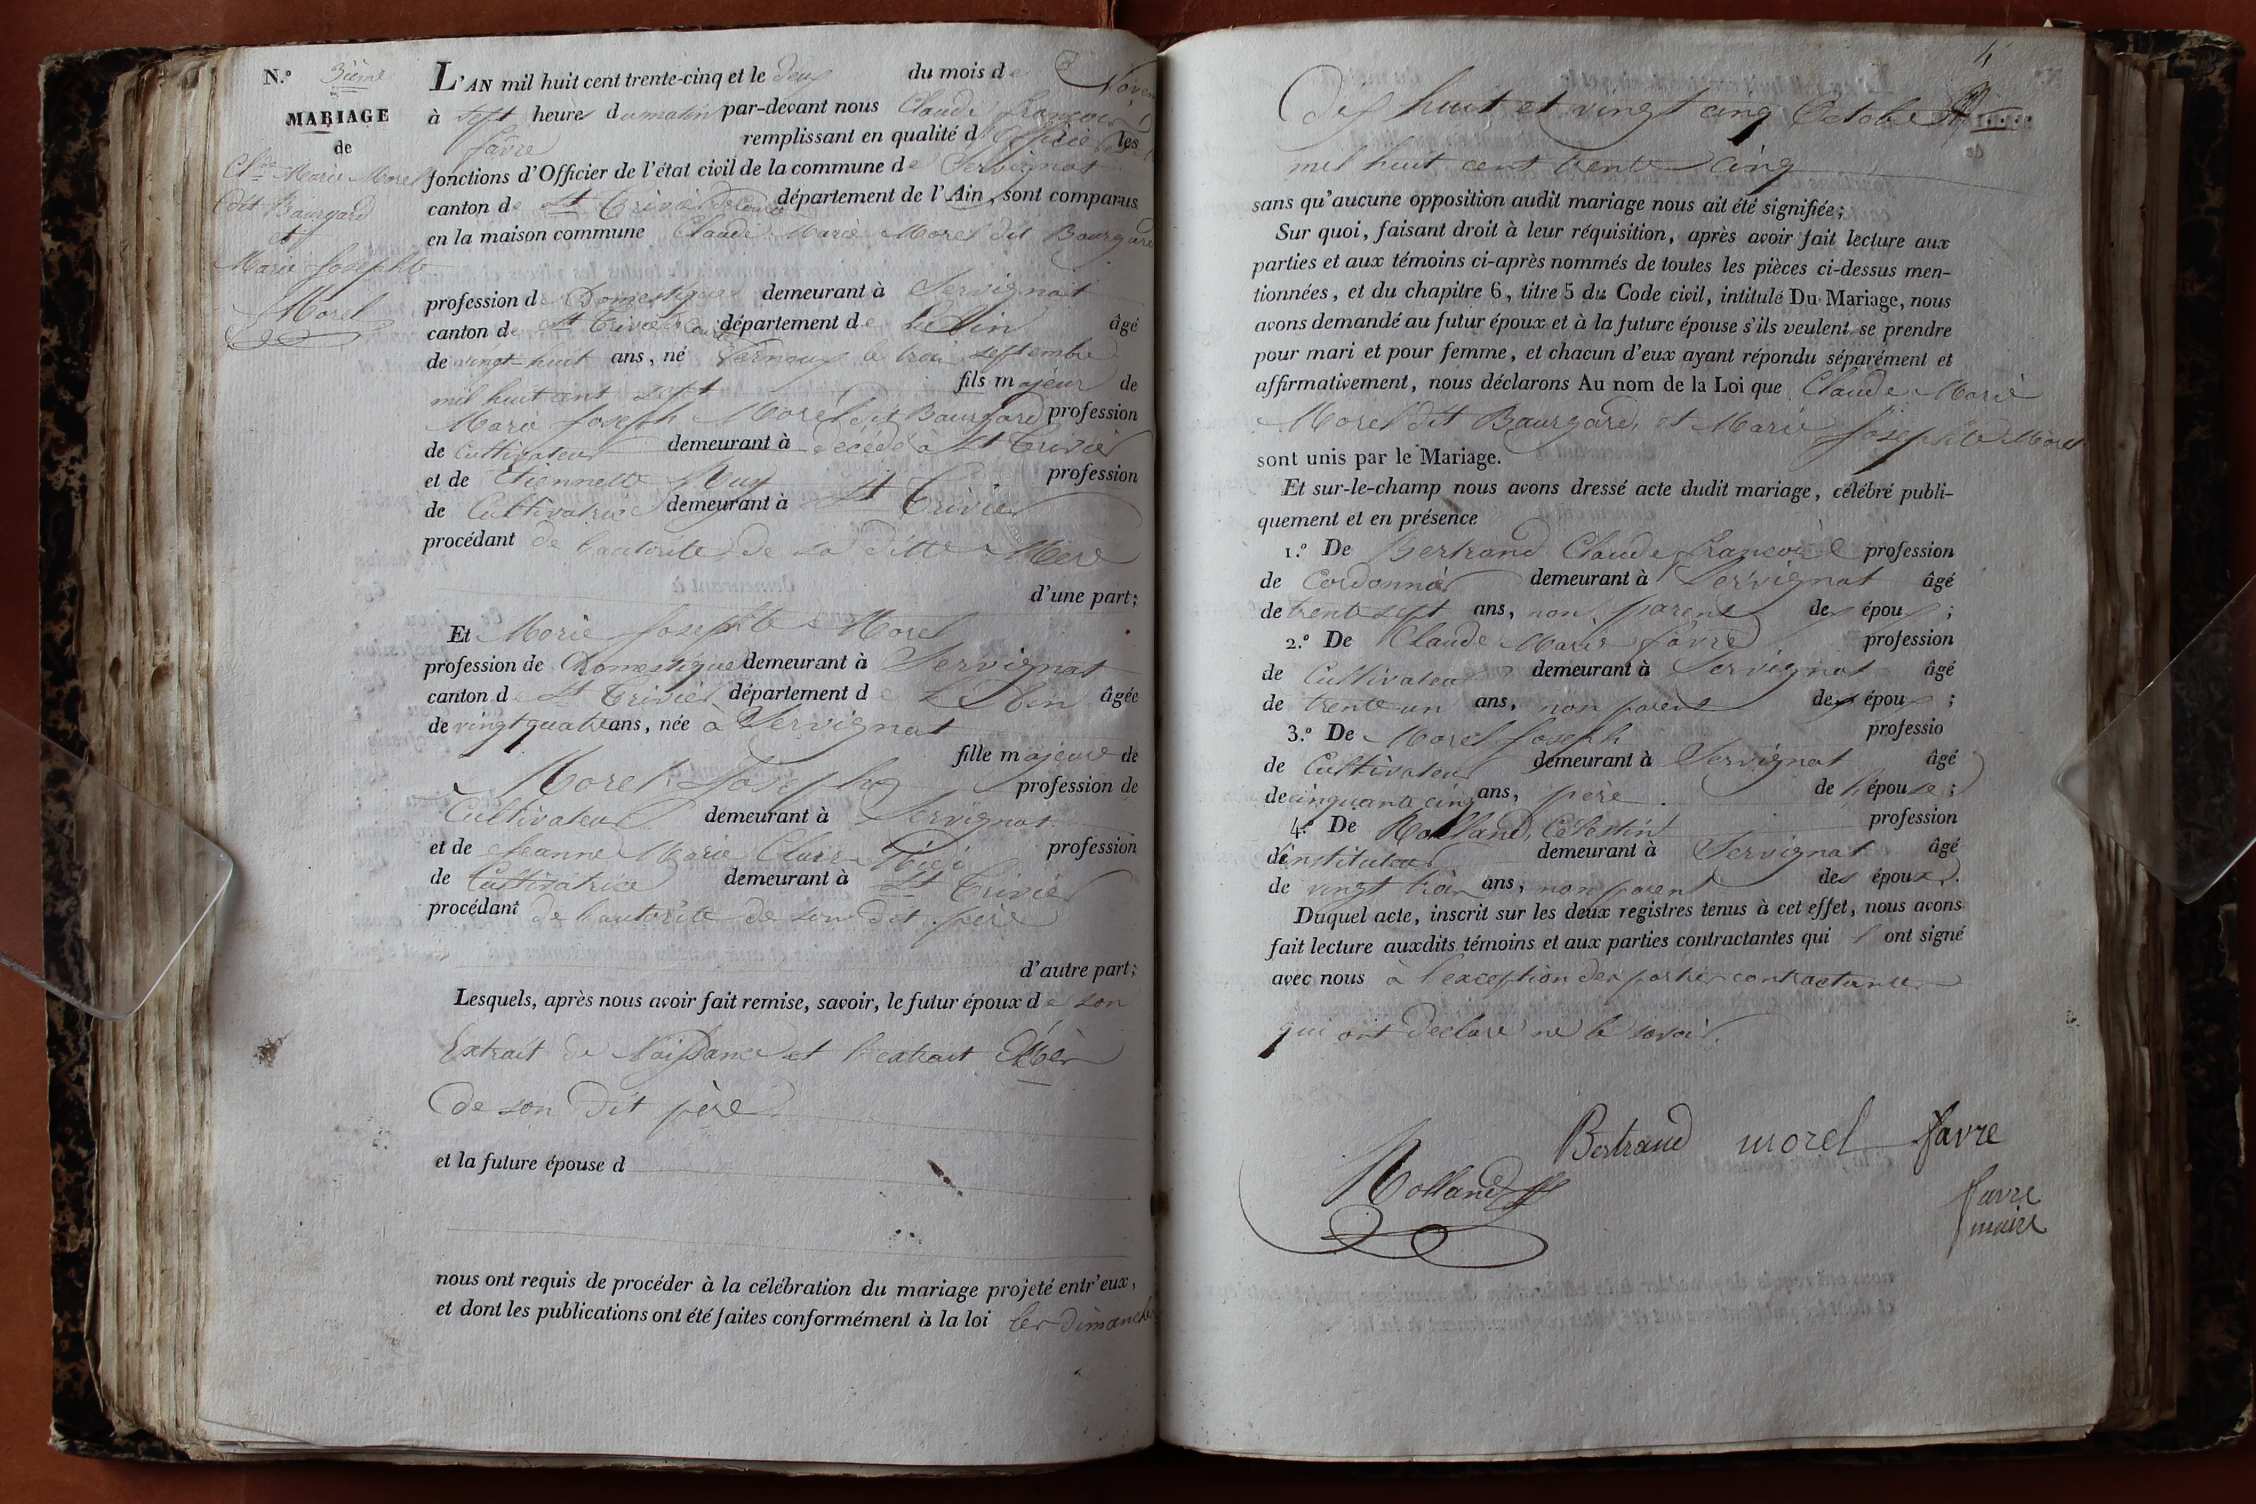 N.º 3ième
MARIAGE
de
Cl.de Marie Morel
dit Baurgard
et
Marie Josephte
Morel
L'AN mil huit cent trente-cinq et le deux du mois de Novem
à sept heures du matin par-devant nous Claude françois
favre remplissant en qualité d'officier les
fonctions d'Officier de l'état civil de la commune de Servignat
canton de St Trivier de Courtes département de l'Ain, sont comparus
en la maison commune Claude Marie Morel dit Baurgard
profession de Domestique demeurant à Servignat
canton de St Trivier de Courtes département de L'Ain âgé
de vingt-huit ans, né Vernoux le trois septembre
mil huit cent sept fils majeur de
Marie Joseph Morel dit Baurgard profession
de Cultivateur demeurant à décédé à St Trivier
et de Etiennette profession
de Cultivatrice demeurant à St Trivier
procédant de l'autorité de sa ditte Mère
d'une part;
Et Marie Josephte Morel
profession de Domestique demeurant à Servignat
canton de St Trivier département de L'Ain âgée
de vingt quatre ans, née à Servignat
fille majeure de
Morel Joseph profession de
Cultivateur demeurant à Servignat
et de Jeanne Marie Claire profession
de Cultivatrice demeurant à St Trivier
procédant de l'autorité de son dit père
d'autre part;
Lesquels, après nous avoir fait remise, savoir, le futur époux de son
Extrait de Naissance et l'extrait
de son dit père
et la future épouse d
nous ont requis de procéder à la célébration du mariage projeté entr'eux,
et dont les publications ont été faites conformément à la loi les dimanches
4
Dix huit et vingt cinq Octobre
mil huit cent trente cinq
sans qu'aucune opposition audit mariage nous ait été signifiée;
Sur quoi, faisant droit à leur réquisition, après avoir fait lecture aux
parties et aux témoins ci-après nommés de toutes les pièces ci-dessus men-
tionnées, et du chapitre 6, titre 5 du Code civil, intitulé Du Mariage, nous
avons demandé au futur époux et à la future épouse s'ils veulent se prendre
pour mari et pour femme, et chacun d'eux ayant répondu séparément et
affirmativement, nous déclarons Au nom de la Loi que Claude Marie
Morel dit Baurgard, et Marie Josephte Morel
sont unis par le Mariage.
Et sur-le-champ nous avons dressé acte dudit mariage, célébré publi-
quement et en présence
1.º De Bertrand Claude françois profession
de Cordonnier demeurant à Servignat âgé
de trente sept ans, non parent des époux;
2.º De Claude Marie favre profession
de Cultivateur demeurant à Servignat âgé
de trente un ans, non parent des époux;
3.º De Morel Joseph professio
de Cultivateur demeurant à Servignat âgé
de cinquante cinq ans, père de l'épouse;
4.º De Rolland Célestin profession
d'instituteur demeurant à Servignat âgé
de vingt trois ans, non parent des époux.
Duquel acte, inscrit sur les deux registres tenus à cet effet, nous avons
fait lecture auxdits témoins et aux parties contractantes qui l'ont signé
avec nous à l'exception des parties contractantes
qui ont déclaré ne le savoir.
Bertrand morel favre
Rolland
favre
maire